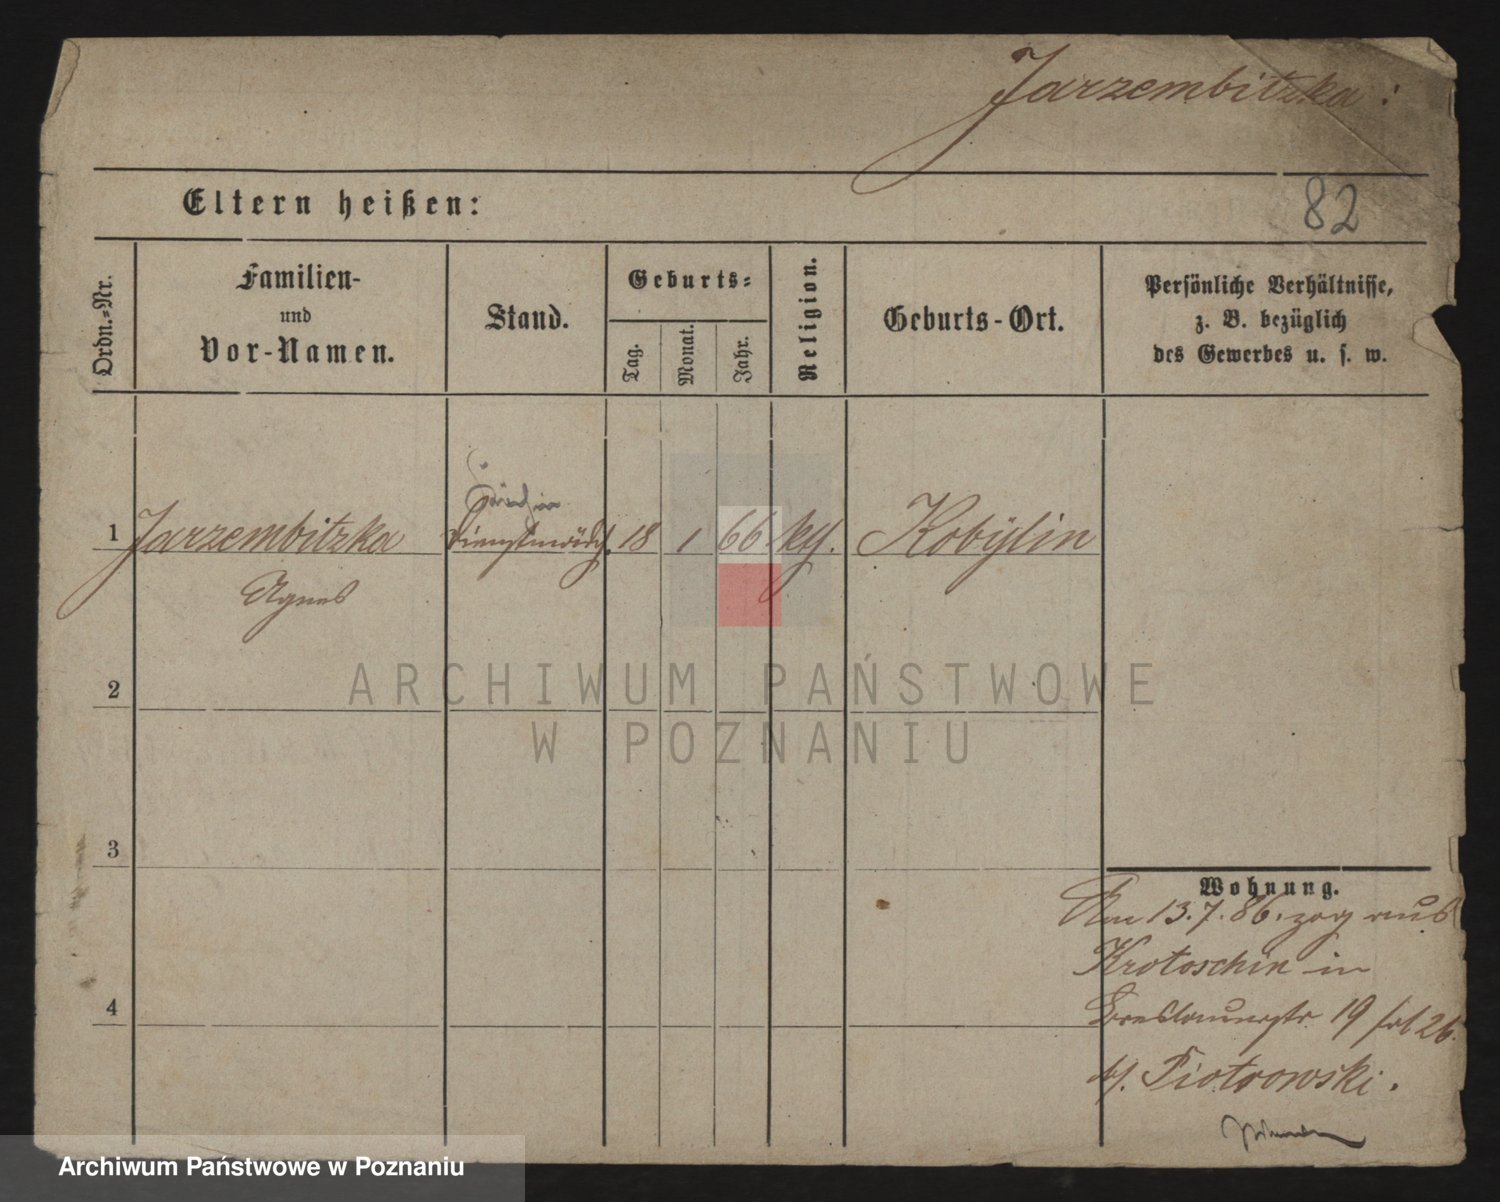 Jarzembitzka:
82
Eltern heißen:
Ordn.-Nr.
Familien-
und
Vor-Namen.
Stand.
Geburts-
Tag.
Monat.
Jahr.
Religion.
Geburts-Ort.
Persönliche Verhältnisse,
z. B. bezüglich
des Gewerbes u. s. w.
1 Jarzembitzka 18 1 66. kth. Kobÿlin
Agnes
2
3
4
Wohnung.
Am 13.7.86. zog aus
Krotoschin in
Breslauerstr 19
b/. Piotrowski.
ARCHIWUM PAŃSTWOWE
W POZNANIU
Archiwum Państwowe w Poznaniu